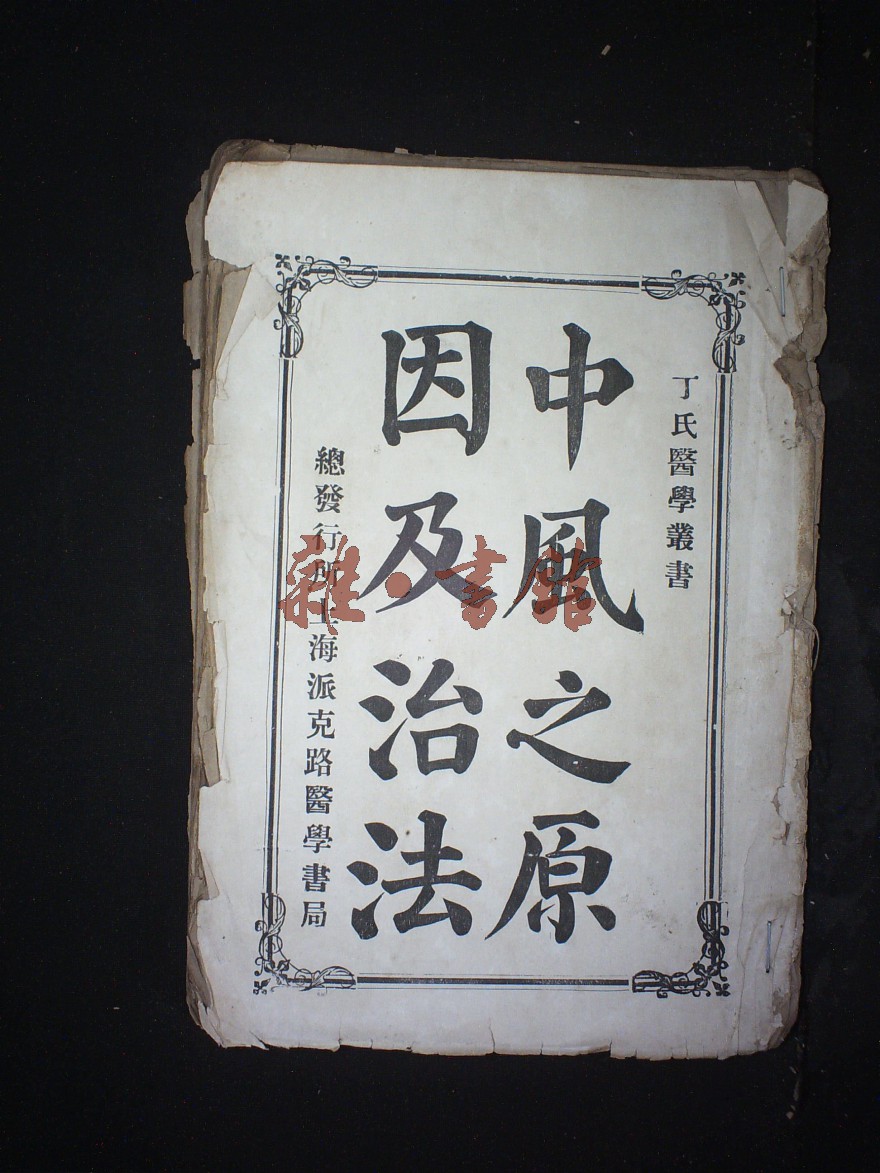 丁氏醫學叢書
中風之原
因及治法
總發行所上海派克路醫學書局
雜·書館